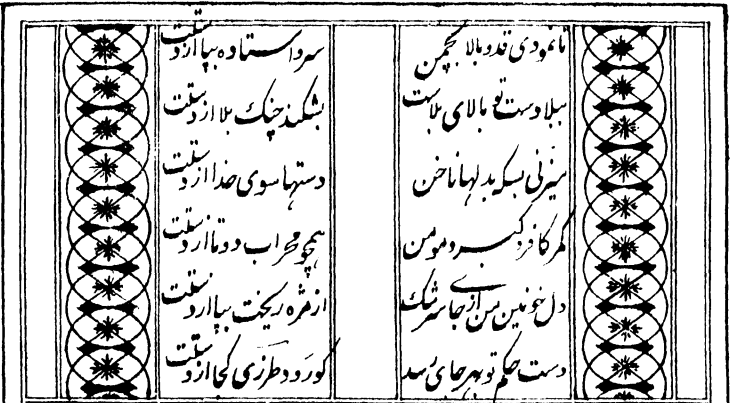 تا نمودی قد و بالا بچمن سرو استاده بپا از دستت
ببلا دست تو بالای بلاست بشکند چنک بلا از دستت
میزنی بسکه بدلها ناخن دستها سوی خدا از دستت
کمر کافر و کبر و مومن همچو محراب دوتا از دستت
دل خونین من از جای سرشک از مژه ریخت بپا از دستت
دست حکم تو بهر جای رسد کو رود طرزی کجا از دستت